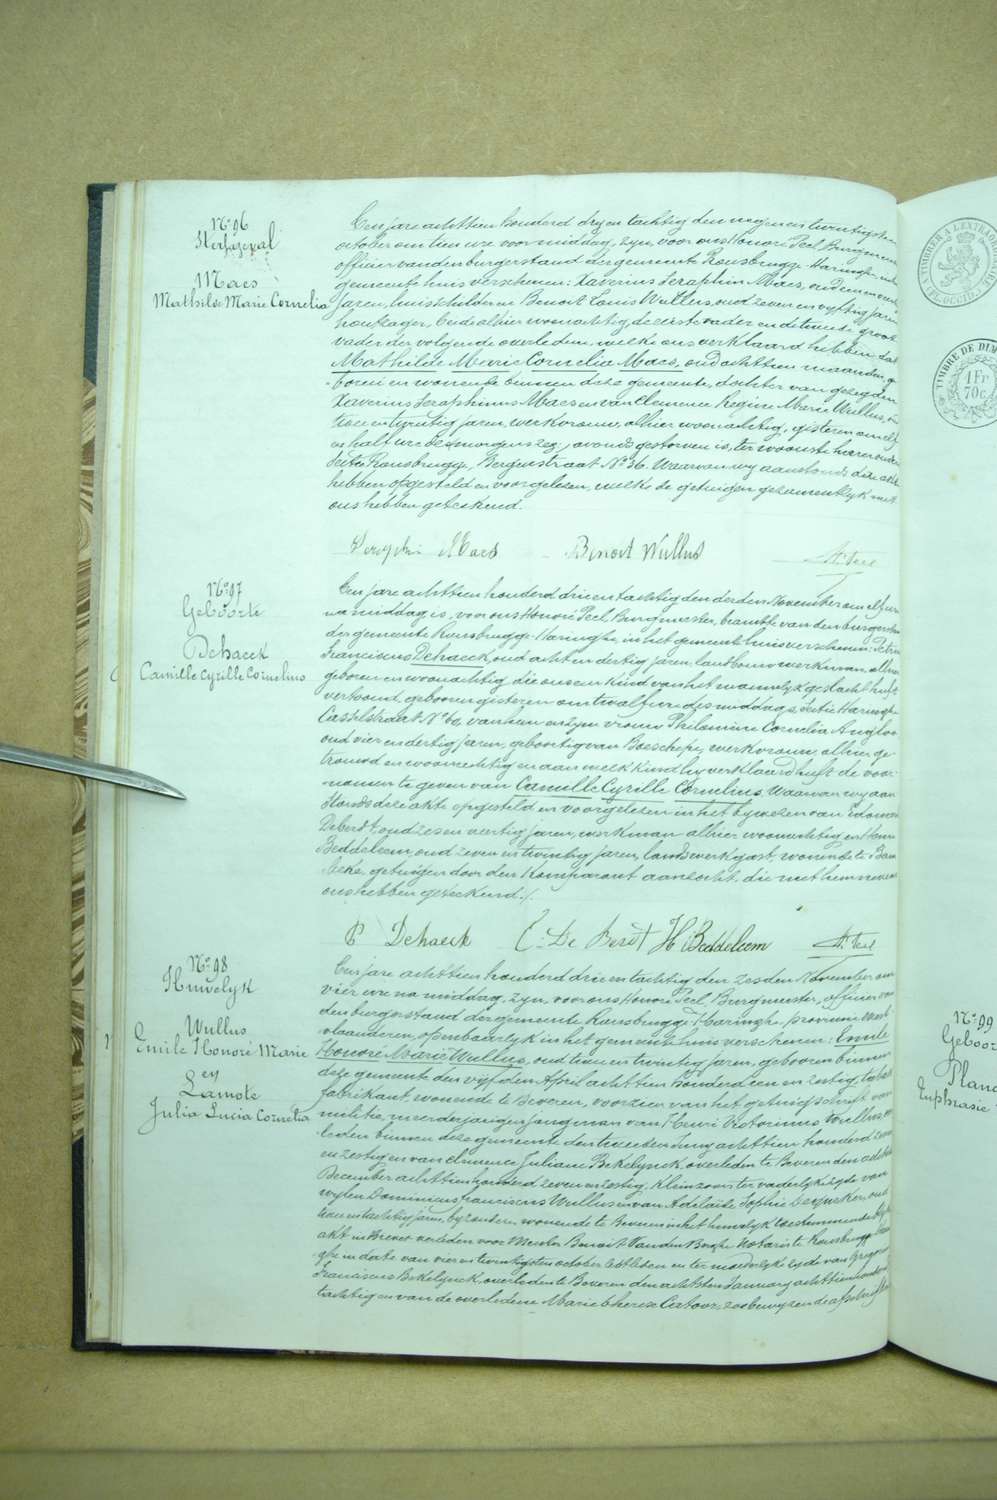 N° 96
Sterfgeval
Maes
Mathilde Marie Cornelia
Een jare achttien honderd dryen tachtig den negenentwintigsten
october om tien ure voor middag, zyn, voor ons Honoré Peel Burgmeester
officier van den burgerstand der gemeente Rousbrugge-Haringhe in het
gemeente huis verschenen: Xaverius Seraphin Maes, oud een en
jaren, huisschilder en Benoit Louis Wullus, oud zeven en vyftig jaren
houtzager, beide alhier woonachtig, de eerste vader en de tweede groot-
vader der volgende overledene, welke ons verklaard hebben, dat
Mathilde Marie Cornelia Maes, oud achttien maanden, ge-
boren en wonende binnen deze gemeente, dochter van gezegden
Xaverius Seraphinus Maes en van Clemence Regine Marie Wullus,
twee en twintig jaren, werkvrouw, alhier woonachtig, gisteren om elf
en half ure des avonds gestorven is, ter woonste harer ouders
Sectie Rousbrugge, Bergenstraat N° 36. Waarvan wy aanstonds deze akte
hebben opgesteld en voorgelezen, welke de getuigen gezamentlyk met
ons hebben geteekend.
Seraphin Maes Benoit Wullus H. Peel
N° 97
Geboorte
Dehaeck
Camille Cyrille Cornelius
Een jare achttien honderd drie en tachtig den derden November om elf ure
na middag is, voor ons Honoré Peel, Burgmeester, beambte van den burgerstand
der gemeente Rousbrugge-Haringhe, in het gemeentehuis verschenen: Petrus
Franciscus Dehaeck, oud acht en dertig jaren, landbouwwerkman, alhier
geboren en woonachtig, die ons een kind van het mannelyk geslacht heeft
vertoond, geboren gisteren om twalf ure des middags, Sectie Haringhe
Casselstraat N° 60, van hem en zyne vrouw Philomene Cornelia Angloo
oud vier en dertig jaren, geboortig van Boeschepe, werkvrouw, alhier ge-
trouwd en woonachtig en aan welk kind hy verklaard heeft de voor-
namen te geven van Camille Cyrille Cornelius. Waarvan wy aan-
stonds deze akte opgesteld en voorgelezen in het bywezen van Edouard
Deberdt, oud zes en veertig jaren, werkman alhier woonachtig en Henri
Beddeleem, oud zeven en twintig jaren, landswerkgast, wonende te Bam-
beke, getuigen door den komparant aanzocht, die met hem nevens
ons hebben geteekend./.
P Dehaeck E. De Berdt H Beddeleem H. Peel
N° 98
Huwelyk
Wullus
Emile Honoré Marie
en
Lamote
Julia Lucia Cornelia
Een jare achttien honderd drie en tachtig den zesden November om
vier ure na middag, zyn, voor ons Honoré Peel Burgmeester, officier van
den burgerstand der gemeente Rousbrugge-Haringhe, provincie West-
vlaanderen, openbaarlyk in het gemeentehuis verschenen: Emile
Honoré Marie Wullus, oud twee en twintig jaren, geboren binnen
deze gemeente den vyfden April achttien honderd een en zestig, tabak
fabrikant wonende te Beveren, voorzien van het getuigschrift van
militie, meerderjarigen jongman van Henri Victorinus Wullus, over-
leden binnen deze gemeente den tweeden Juny achttien honderd zeven
en zestig en van Clemence Juliane Bekelynck, overleden te Beveren den achtsten
December achttien honderd zeven en zestig, kleinzoon ter vaderlyke zyde van
wylen Dominicus Franciscus Wullus en van Adelaïde Sophie oud
twee en tachtig jaren, byzondere, wonende te Beveren in het huwelyk toestemmende by
akt in Brevet verleden voor Meester Benoit Vanden Berghe notaris te Rousbrugge-Harin-
ghe in date van vier en twintigsten october lestleden en ter moederlyke zyde van Gregorius
Franciscus Bekelynck, overleden te Beveren den achtsten January achttien honderd
tachtig en van de overledene Marie Therese zoo bewyzen de afschriften
TIMBRE DE DIM
1 Fr
70 c.
N° 99
Euphrasie